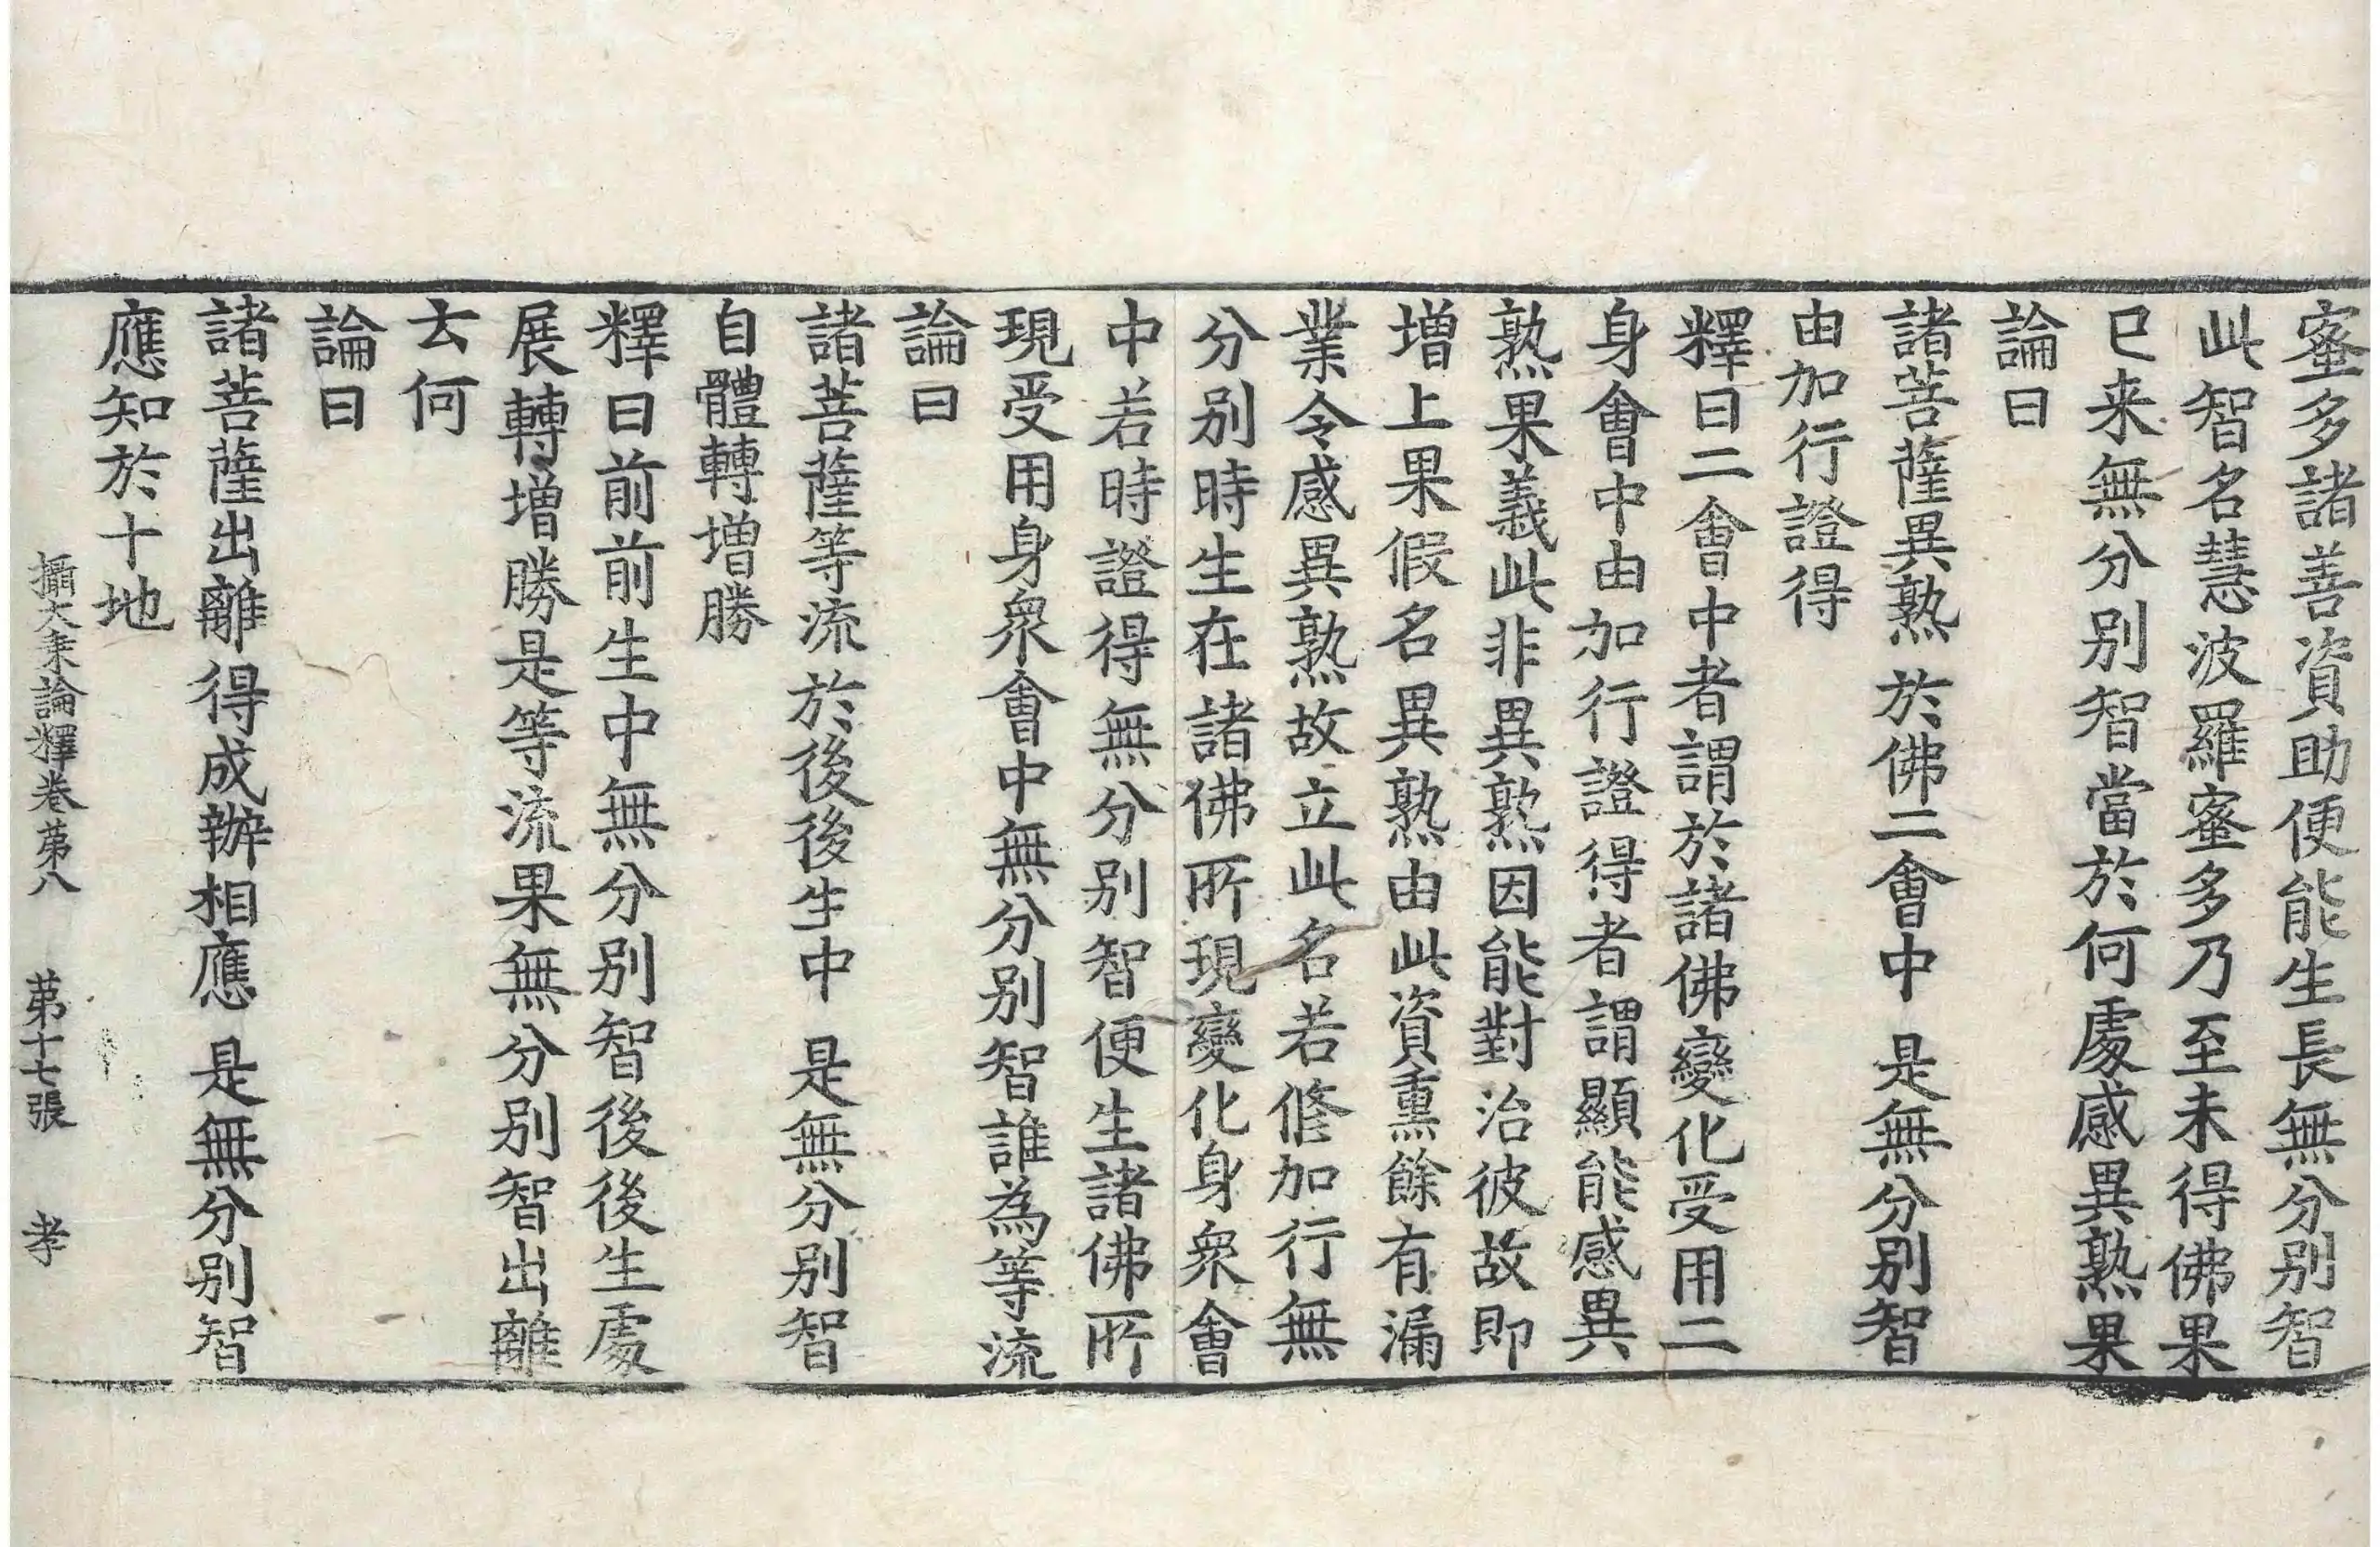 蜜多諸善資助便能生長無分别智
此智名慧波羅蜜多乃至未得佛果
已来無分别智當於何處感異熟果
論曰
諸菩薩異熟 於佛二會中 是無分别智
由加行證得
釋曰二會中者謂於諸佛變化受用二
身會中由加行證得者謂顯能感異
熟果義此非異熟因能對治彼故即
增上果假名異熟由此資熏餘有漏
業令感異熟故立此名若修加行無
分别時生在諸佛所現變化身衆會
中若時證得無分别智便生諸佛所
現受用身衆會中無分别智誰為等流
論曰
諸菩薩等流於後後生中 是無分别智
自體轉增勝
釋曰前前生中無分别智後後生處
展轉增勝是等流果無分别智出離
云何
論曰
諸菩薩出離得成辦相應 是無分别智
應知於十地
攝大乗論釋卷苐八 苐十七張 孝